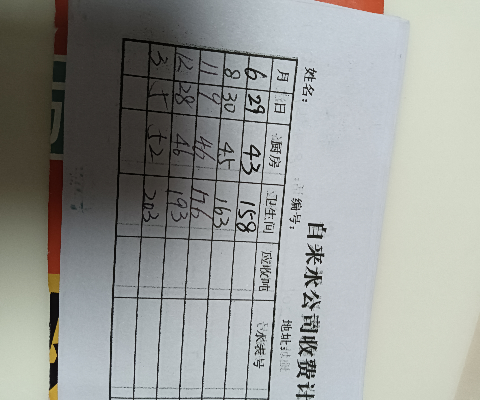 自来水公司收费计
姓名: 编号: 地址:
月 日 厨房 卫生间 应收吨 水表号
6 29 43 158
8 30 45 163
11 9 46 176
12 28 46 193
3 5 52 203